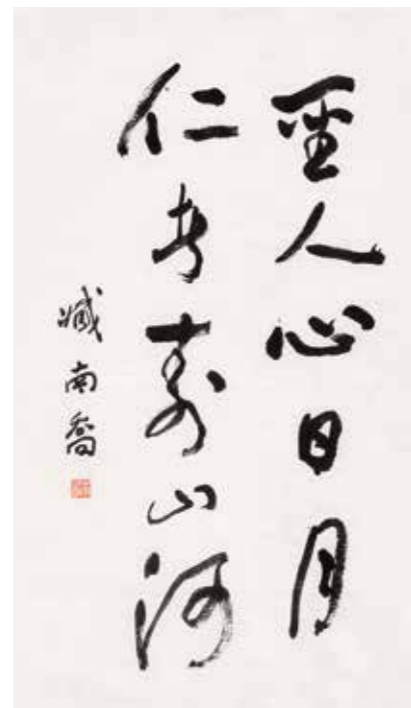 聖人心日月
仁者壽山河
臧南喬